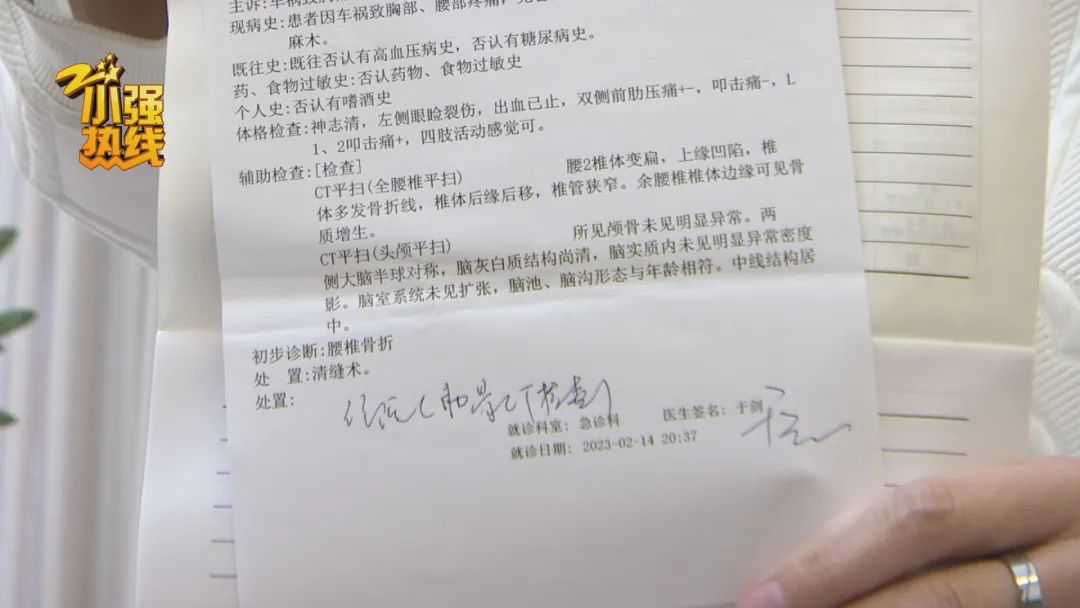 小强
热线
主诉:车祸致胸
现病史:患者因车祸致胸部、腰部疼痛,
麻木。
既往史:既往否认有高血压病史,否认有糖尿病史。
药、食物过敏史:否认药物、食物过敏史
个人史:否认有嗜酒史
体格检查:神志清,左侧眼睑裂伤,出血已止,双侧前肋压痛+-,叩击痛-,L
1、2叩击痛+,四肢活动感觉可。
辅助检查:[检查]
CT平扫(全腰椎平扫) 腰2椎体变扁,上缘凹陷,椎
体多发骨折线,椎体后缘后移,椎管狭窄。余腰椎椎体边缘可见骨
质增生。
CT平扫(头颅平扫) 所见颅骨未见明显异常。两
侧大脑半球对称,脑灰白质结构尚清,脑实质内未见明显异常密度
影。脑室系统未见扩张,脑池、脑沟形态与年龄相符。中线结构居
中。
初步诊断:腰椎骨折
处 置:清缝术。
处置:
就诊科室: 急诊科 医生签名: 于剑
就诊日期: 2023-02-14 20:37